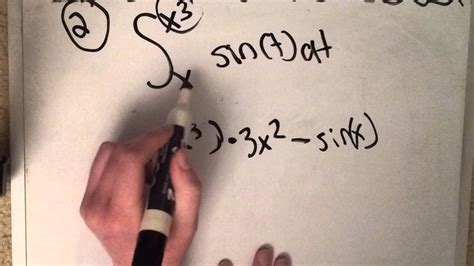 2
∫ₓ^{x³} sin(t)dt
³)·3x² − sin(x)